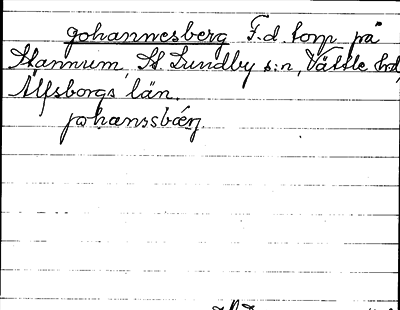 Johannesberg F.d. torp på
Stannum, St Lundby s:n, Vättle hd,
Älfsborgs län.
johanssbærj.